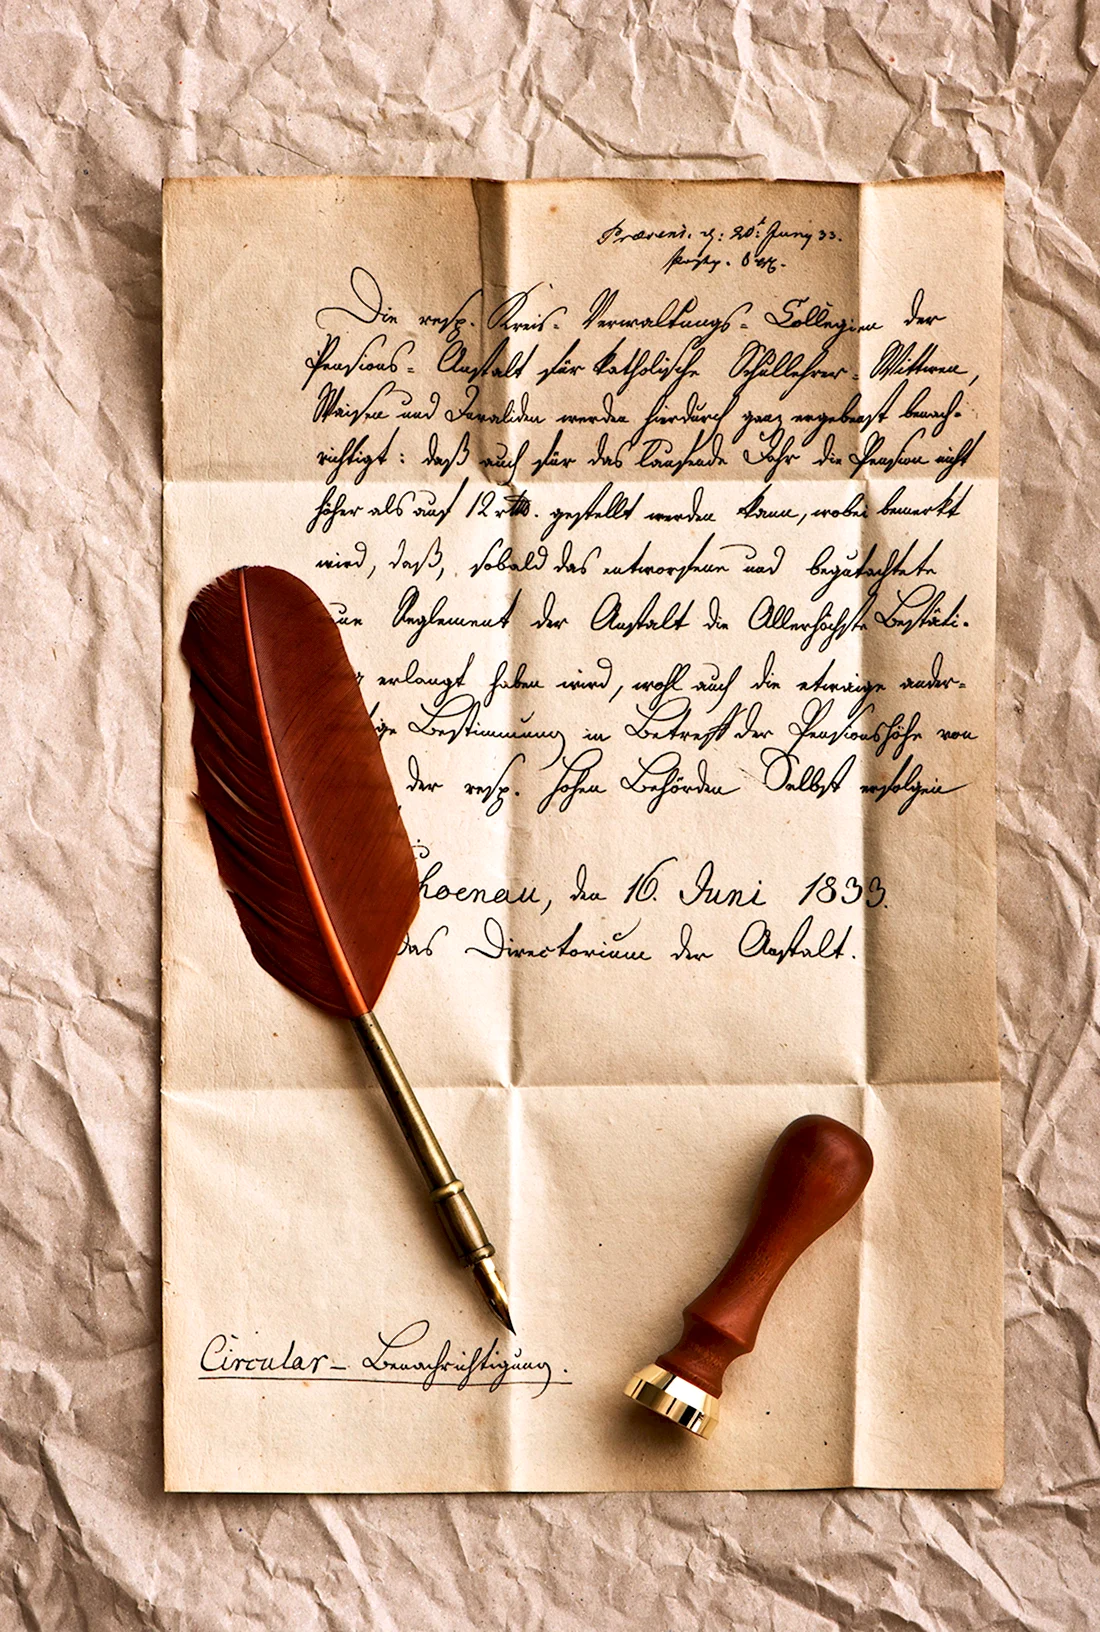 Præsent. d: 20t Juny 33.
Die resp. Kreis- Verwaltungs- Collegien der
Pensions- Anstalt für katholische Schullehrer- Wittwen,
Waisen und Invaliden werden hierdurch ganz ergebenst benach-
richtigt: daß auch für das laufende Jahr die Pension nicht
höher als auf 12 rthl. gestellt werden kann, wobei bemerkt
wird, daß, sobald das entworfene und begutachtete
Reglement der Anstalt die Allerhöchste Bestäti-
erlangt haben wird, wohl auch die etwaige ander-
Bestimmung in Betreff der Pensionshöhe von
der resp. hohen Behörden Selbst erfolgen
choenau, den 16. Juni 1833.
Das Directorium der Anstalt.
Circular- Benachrichtigung.